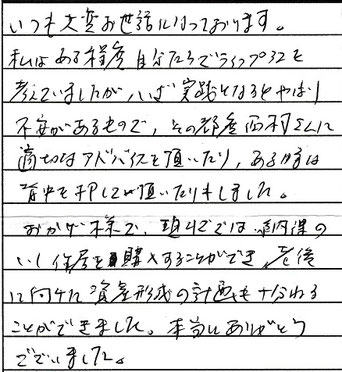 いつも大変お世話になっております。
私はある程度自分たちでライフプランを
考えていましたが、いざ実践となるとやはり
不安があるもので、その都度西村さんに
適切なアドバイスを頂いたり、ある時は
背中を押して頂いたりもしました。
おかげ様で、現在では、納得の
いく住居を購入することができ、老後
に向けた資産形成の計画も十分ねる
ことができました。本当にありがとう
ございました。